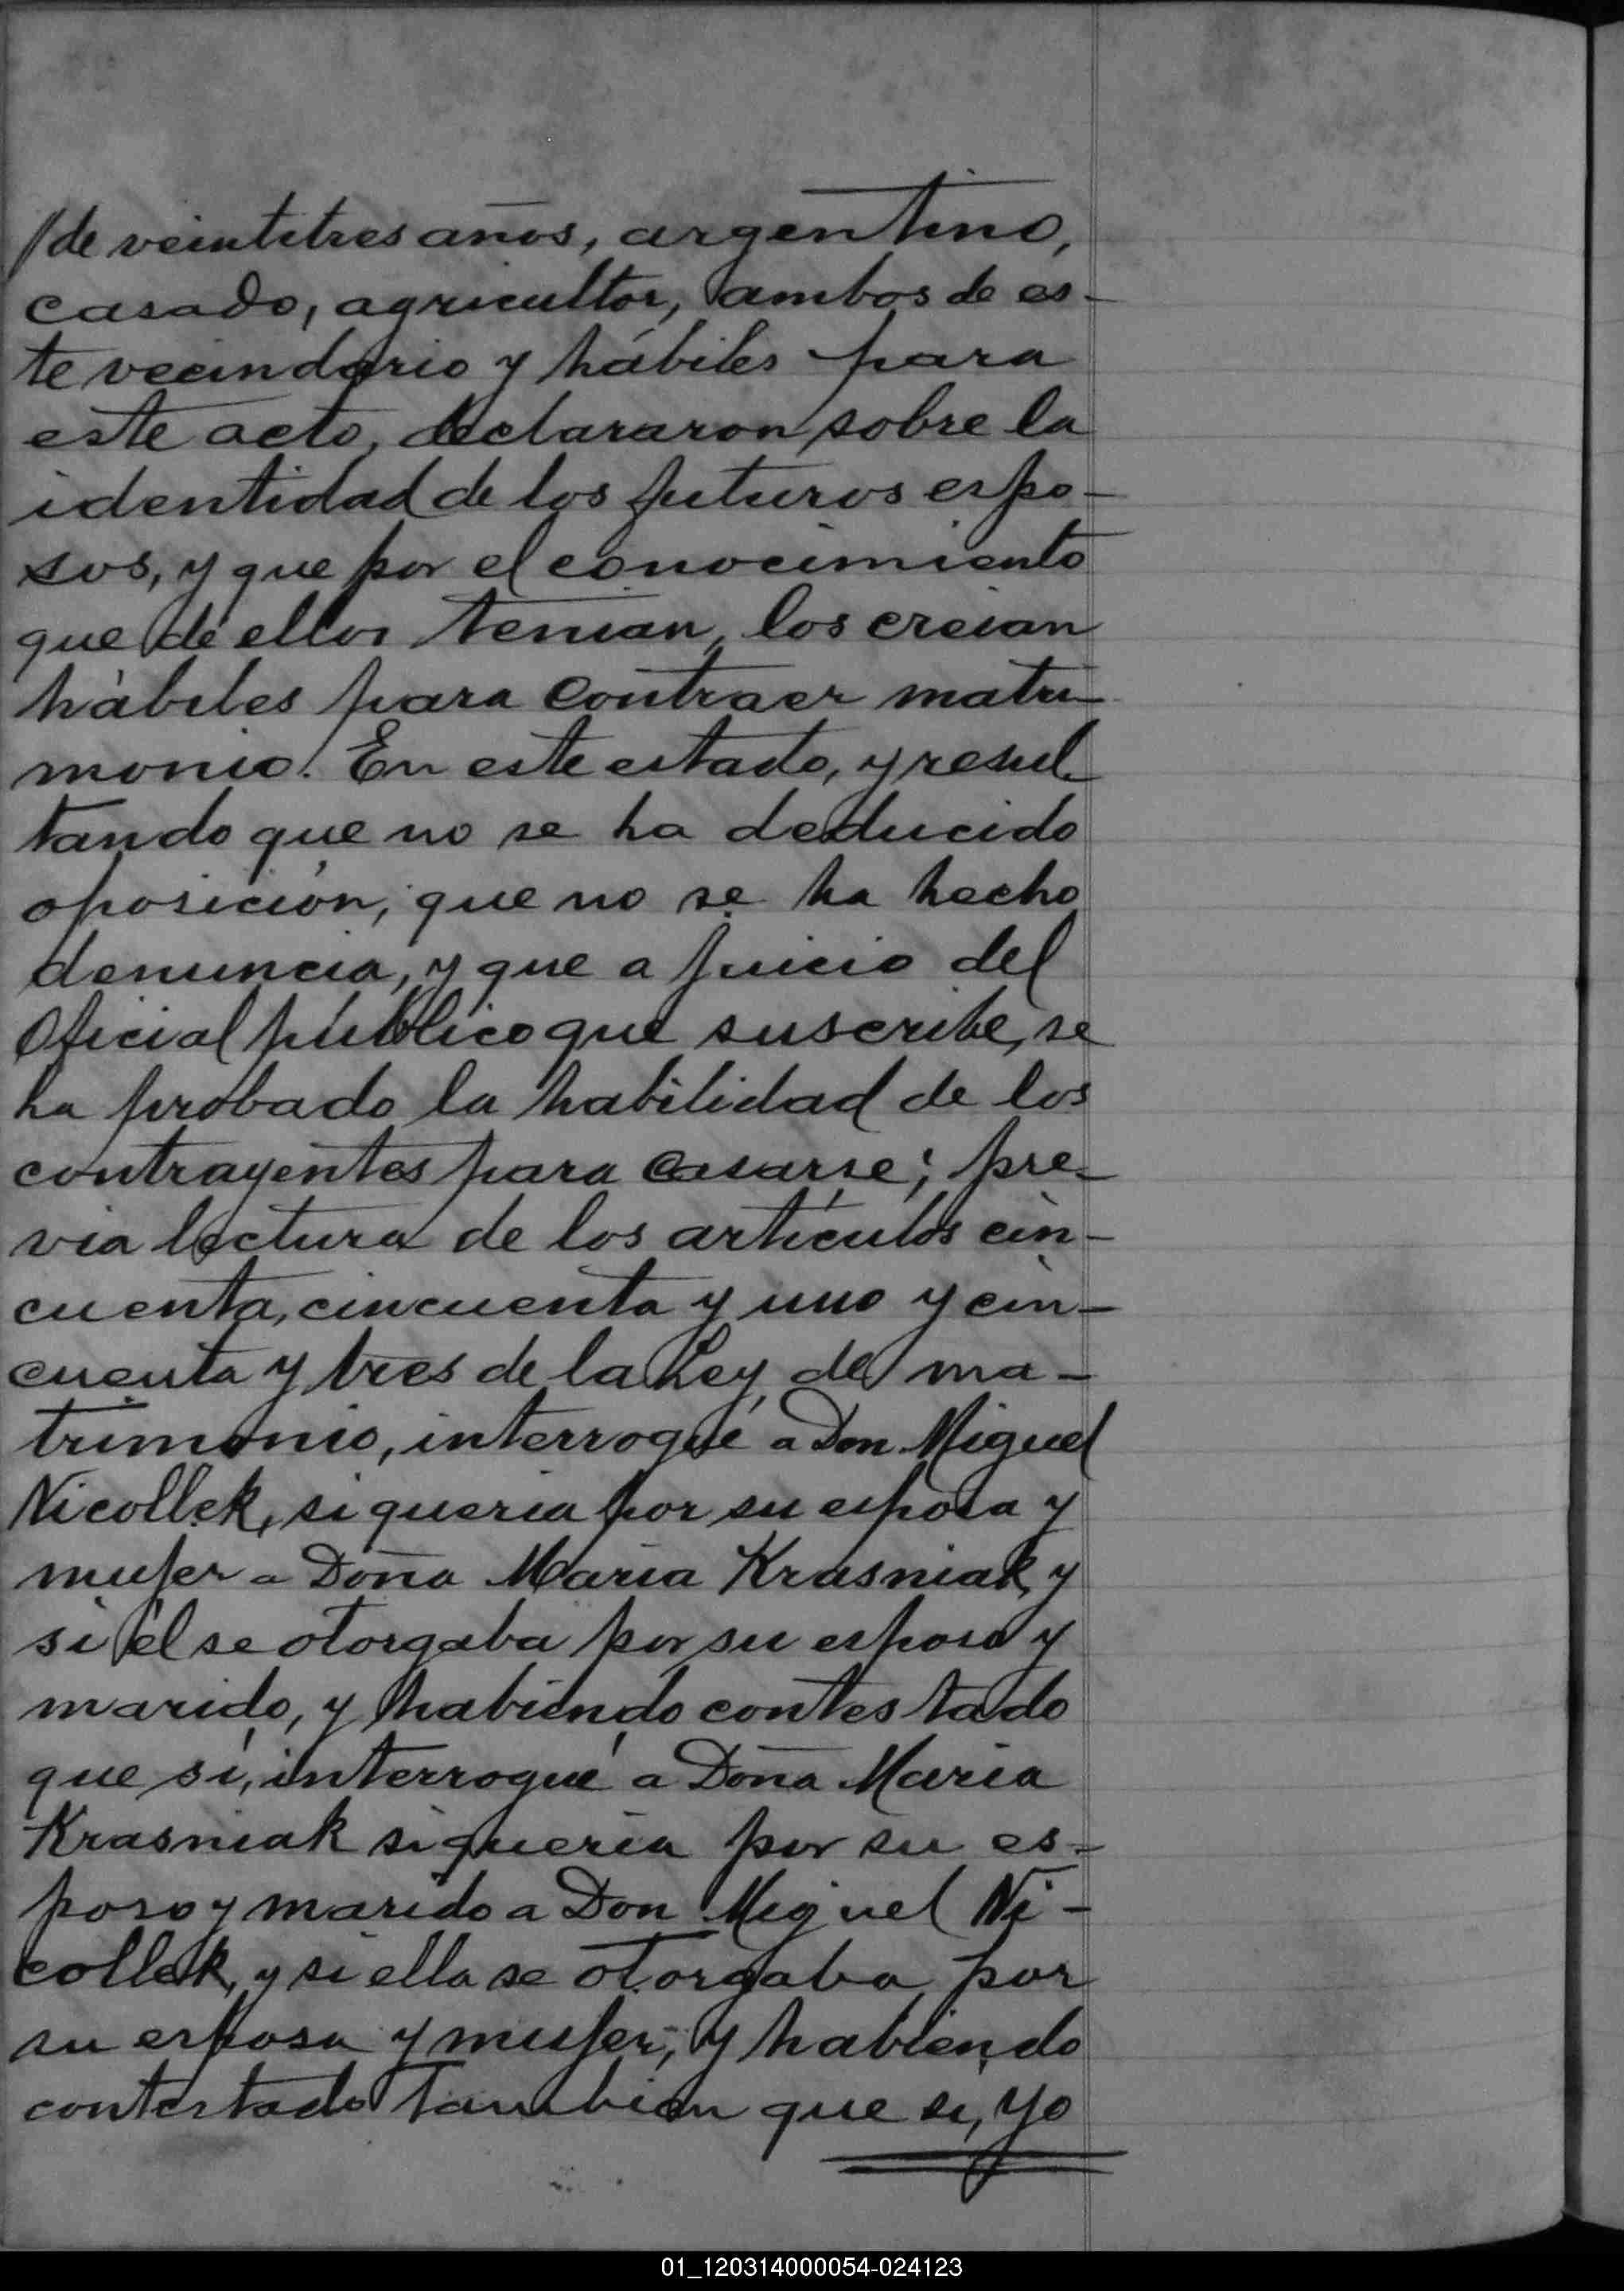 /de veintitres años, argentino,
casado, agricultor, ambos de es-
te vecindario y hábiles para
este acto, declararon sobre la
identidad de los futuros espo-
sos, y que por el conocimiento
que de ellos tenian, los creian
hábiles para contraer matri-
monio. En este estado, y resul-
tando que no se ha deducido
oposición, que no se ha hecho
denuncia, y que a juicio del
Oficial público que suscribe, se
ha probado la habilidad de los
contrayentes para casarse; pre-
via lectura de los artículos cin-
cuenta, cincuenta y uno y cin-
cuenta y tres de la Ley de ma-
trimonio, interrogué a Don Miguel
Nicollek, si queria por su esposa y
mujer a Doña Maria Krasniak, y
si él se otorgaba por su esposo y
marido, y habiendo contestado
que sí, interrogué a Doña Maria
Krasniak si queria por su es-
poso y marido a Don Miguel Ni-
collek, y si ella se otorgaba por
su esposa y mujer, y habiendo
contestado tambien que si, yo
01_120314000054-024123